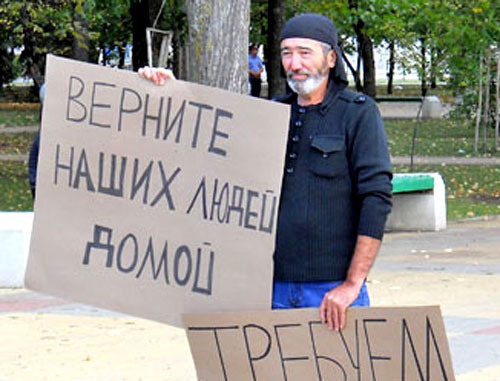 ВЕРНИТЕ
НАШИХ ЛЮДЕЙ
ДОМОЙ
ТРЕБУЕМ